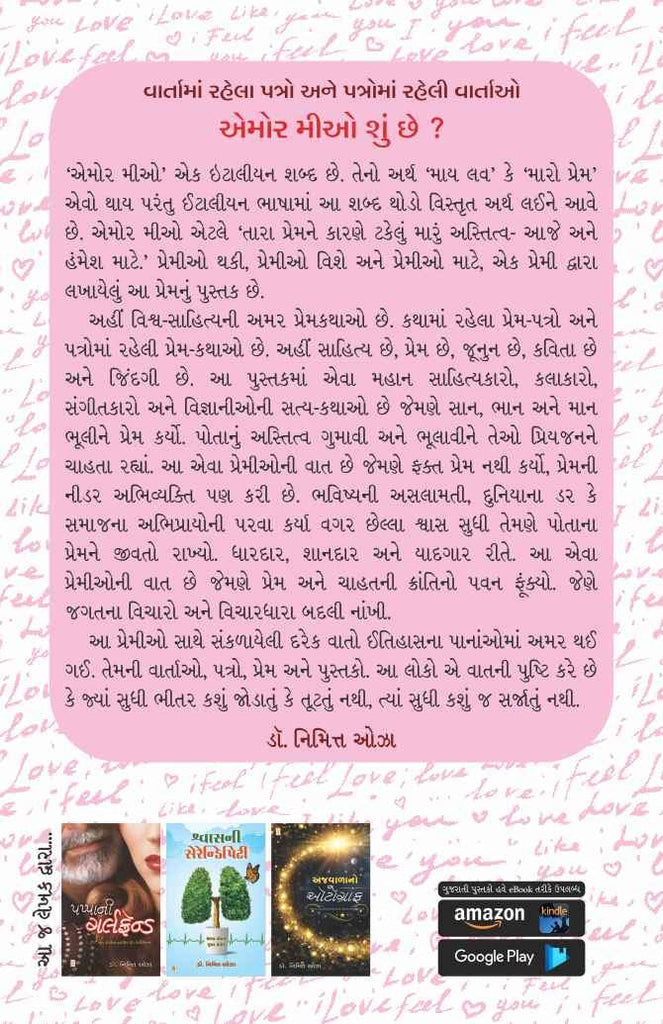 વાર્તામાં રહેલા પત્રો અને પત્રોમાં રહેલી વાર્તાઓ
એમોર મીઓ શું છે ?
‘એમોર મીઓ’ એક ઇટાલીયન શબ્દ છે. તેનો અર્થ ‘માય લવ’ કે ‘મારો પ્રેમ’
એવો થાય પરંતુ ઈટાલીયન ભાષામાં આ શબ્દ થોડો વિસ્તૃત અર્થ લઈને આવે
છે. એમોર મીઓ એટલે ‘તારા પ્રેમને કારણે ટકેલું મારું અસ્તિત્વ- આજે અને
હંમેશ માટે.’ પ્રેમીઓ થકી, પ્રેમીઓ વિશે અને પ્રેમીઓ માટે, એક પ્રેમી દ્વારા
લખાયેલું આ પ્રેમનું પુસ્તક છે.
અહીં વિશ્વ-સાહિત્યની અમર પ્રેમકથાઓ છે. કથામાં રહેલા પ્રેમ-પત્રો અને
પત્રોમાં રહેલી પ્રેમ-કથાઓ છે. અહીં સાહિત્ય છે, પ્રેમ છે, જૂનુન છે, કવિતા છે
અને જિંદગી છે. આ પુસ્તકમાં એવા મહાન સાહિત્યકારો, કલાકારો,
સંગીતકારો અને વિજ્ઞાનીઓની સત્ય-કથાઓ છે જેમણે સાન, ભાન અને માન
ભૂલીને પ્રેમ કર્યો. પોતાનું અસ્તિત્વ ગુમાવી અને ભૂલાવીને તેઓ પ્રિયજનને
ચાહતા રહ્યાં. આ એવા પ્રેમીઓની વાત છે જેમણે ફક્ત પ્રેમ નથી કર્યો, પ્રેમની
નીડર અભિવ્યક્તિ પણ કરી છે. ભવિષ્યની અસલામતી, દુનિયાના ડર કે
સમાજના અભિપ્રાયોની પરવા કર્યા વગર છેલ્લા શ્વાસ સુધી તેમણે પોતાના
પ્રેમને જીવતો રાખ્યો. ધારદાર, શાનદાર અને યાદગાર રીતે. આ એવા
પ્રેમીઓની વાત છે જેમણે પ્રેમ અને ચાહતની ક્રાંતિનો પવન ફૂંક્યો. જેણે
જગતના વિચારો અને વિચારધારા બદલી નાંખી.
આ પ્રેમીઓ સાથે સંકળાયેલી દરેક વાતો ઈતિહાસના પાનાંઓમાં અમર થઈ
ગઈ. તેમની વાર્તાઓ, પત્રો, પ્રેમ અને પુસ્તકો. આ લોકો એ વાતની પુષ્ટિ કરે છે
કે જ્યાં સુધી ભીતર કશું જોડાતું કે તૂટતું નથી, ત્યાં સુધી કશું જ સર્જાતું નથી.
ડૉ. નિમિત્ત ઓઝા
આ જ લેખક દ્વારા...
પપ્પાની
ગર્લફ્રેન્ડ
ડૉ. નિમિત્ત ઓઝા
શ્વાસની
સેરેન્ડિપિટી
ડૉ. નિમિત્ત ઓઝા
અજવાળાનો
ઓટોગ્રાફ
ડૉ. નિમિત્ત ઓઝા
ગુજરાતી પુસ્તકો હવે eBook તરીકે ઉપલબ્ધ
amazon kindle
Google Play